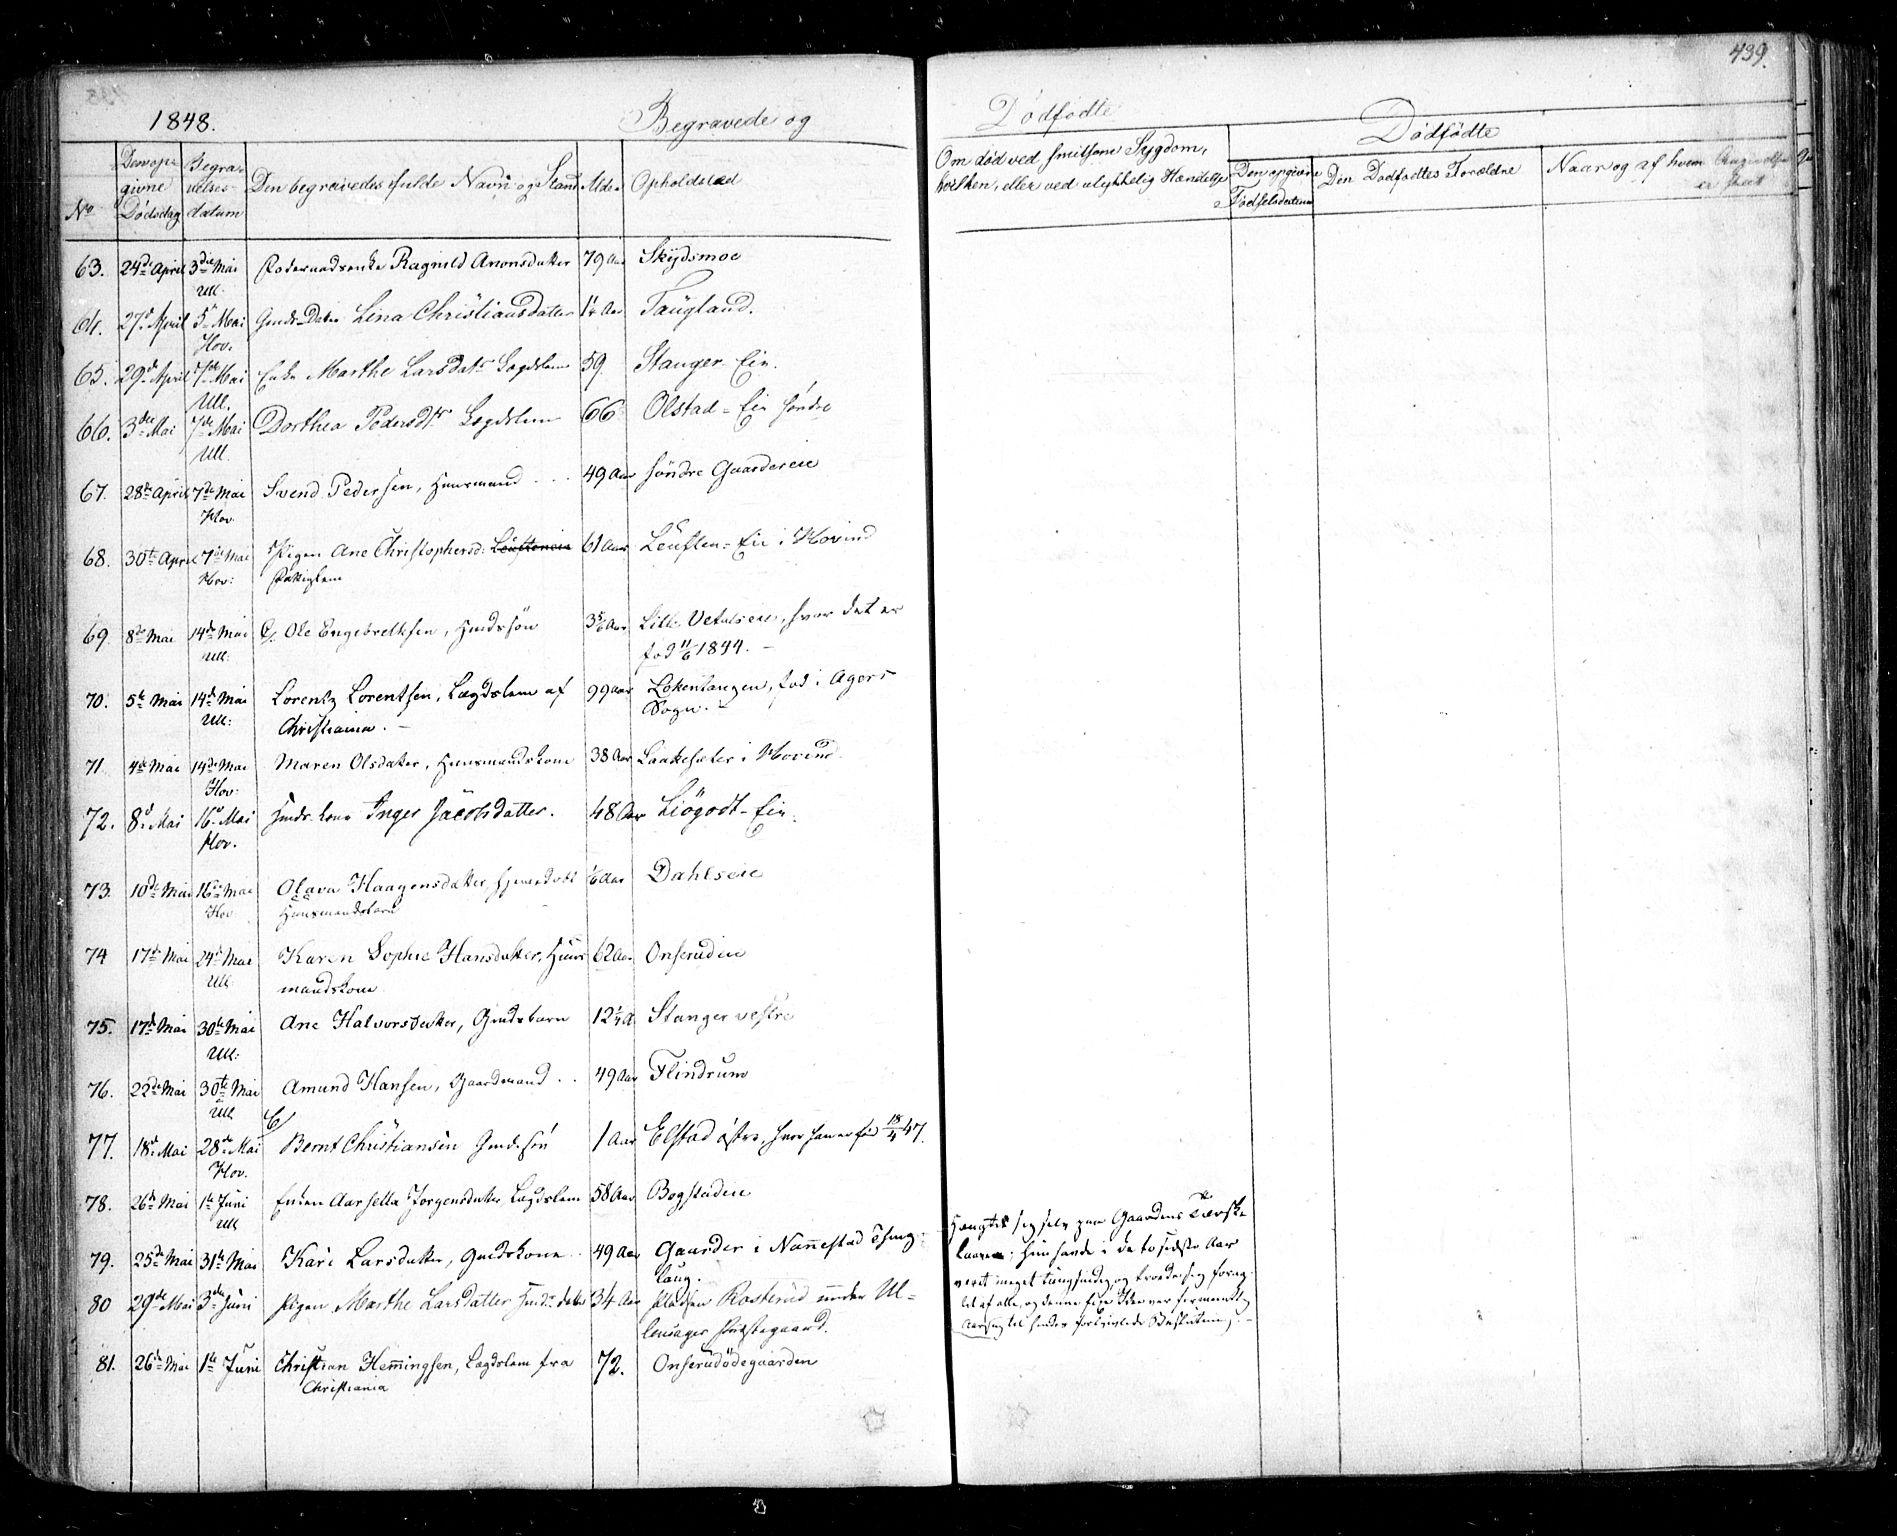 439.
1848. Begravede og Dødfødte
Dødfødte
No
Den opgivne Dødsdag
Begravelsesdatum
Den begravedes fulde Navn og Stand
Alder
Opholdsted
Om død ved smitsom Sygdom, hvilken, eller ved ulykkelig Hændelse
Den opgivne Fødselsdatum
Den Dødfødtes Forældre
Naar og af hvem Angivelse er skeet
63. 24de April 3die Mai Ragnild Amonsdatter 79 Aar Skydsmoe
Ull.
64. 27d April 5te Mai Gmds Datter Lina Christiansdatter Aar Taugland.
Hov.
65. 29de April 7de Mai Enke Marthe Larsdatr Lægdslem 59 Stanger Eie.
Ull.
66. 3die Mai 7de Mai Dorthea Pedersdtr Lægdslem 66 Olstad-Eie søndre
Ull.
67. 28de April 7de Mai Svend Pedersen, Huusmand 49 Aar søndre Gaardereie
Hov.
68. 30te April 7de Mai Pigen Ane Christophersd: 61 Aar Leuften-Eie i Hovind
Hov: Fattiglem
69. 8de Mai 14de Mai Ole Engebretksen, Hmdssøn 3 5/6 Aar Lille Vetalseie, hvor det er
Ull: fød 11/6 1844.
70. 5te Mai 14de Mai Lorentz Lorentsen, Lægdslem af 99 aar Løkenlangen, fød i Agers
Ull: Christiania. Sogn.
71. 4de Mai 14de Mai Maren Olsdatter, Huusmandskone 38 Aar Laakesæter i Hovind
Hov:
72. 8d Mai 16d Mai Hmds kone Inger Jacobsdatter. 48 Aar Liøgodt-Eie.
Hov.
73. 10de Mai 16de Mai Olava Haagensdatter, hjemmedøbt 1/6 Aar Dahlseie
Hov. Huusmandsbarn
74 17de Mai 24de Mai Karen Sophie Hansdatter, Huus 62 Aar Onserudeie
Ull mandskone
75. 17de Mai 30te Mai Ane Halvorsdatter, Gmdsbarn 12 1/4 A Stanger vestre
Ull:
76. 22de Mai 30te Mai Amund Hansen, Gaardmand 49 Aar Flindrum
Ull
77. 18d Mai 28de Mai Bernt Christiansen Gmds søn 1 Aar Elstad østre, hvor han er fød 18/4 47.
Hov.
78. 26de Mai 1te Juni Enken Aarsella Jørgensdatter Lægdslem 58 Aar Bogstadeie
Ull
79. 25de Mai 31te Mai Kari Larsdatter, Gmdskone 49 Aar Gaarder i Nannestad Thing
laug.
Hængte sig selv paa Gaardens Tærske
laave; hun havde i de to sidste Aar
været meget tungsindig og troede sig forag
tet af alle, og denne fixe Ide var formentlig
Aarsag til hendes fortvivlede Beslutning.
80 29de Mai 3die Juni Pigen Marthe Larsdatter Hmds datter 34 Aar Pladsen Rosterud under Ul-
lensager Præstegaard.
81. 26de Mai 1te Juni Christian Hemingsen, Lægdslem fra 72. Onserudødegaarden
Christiania